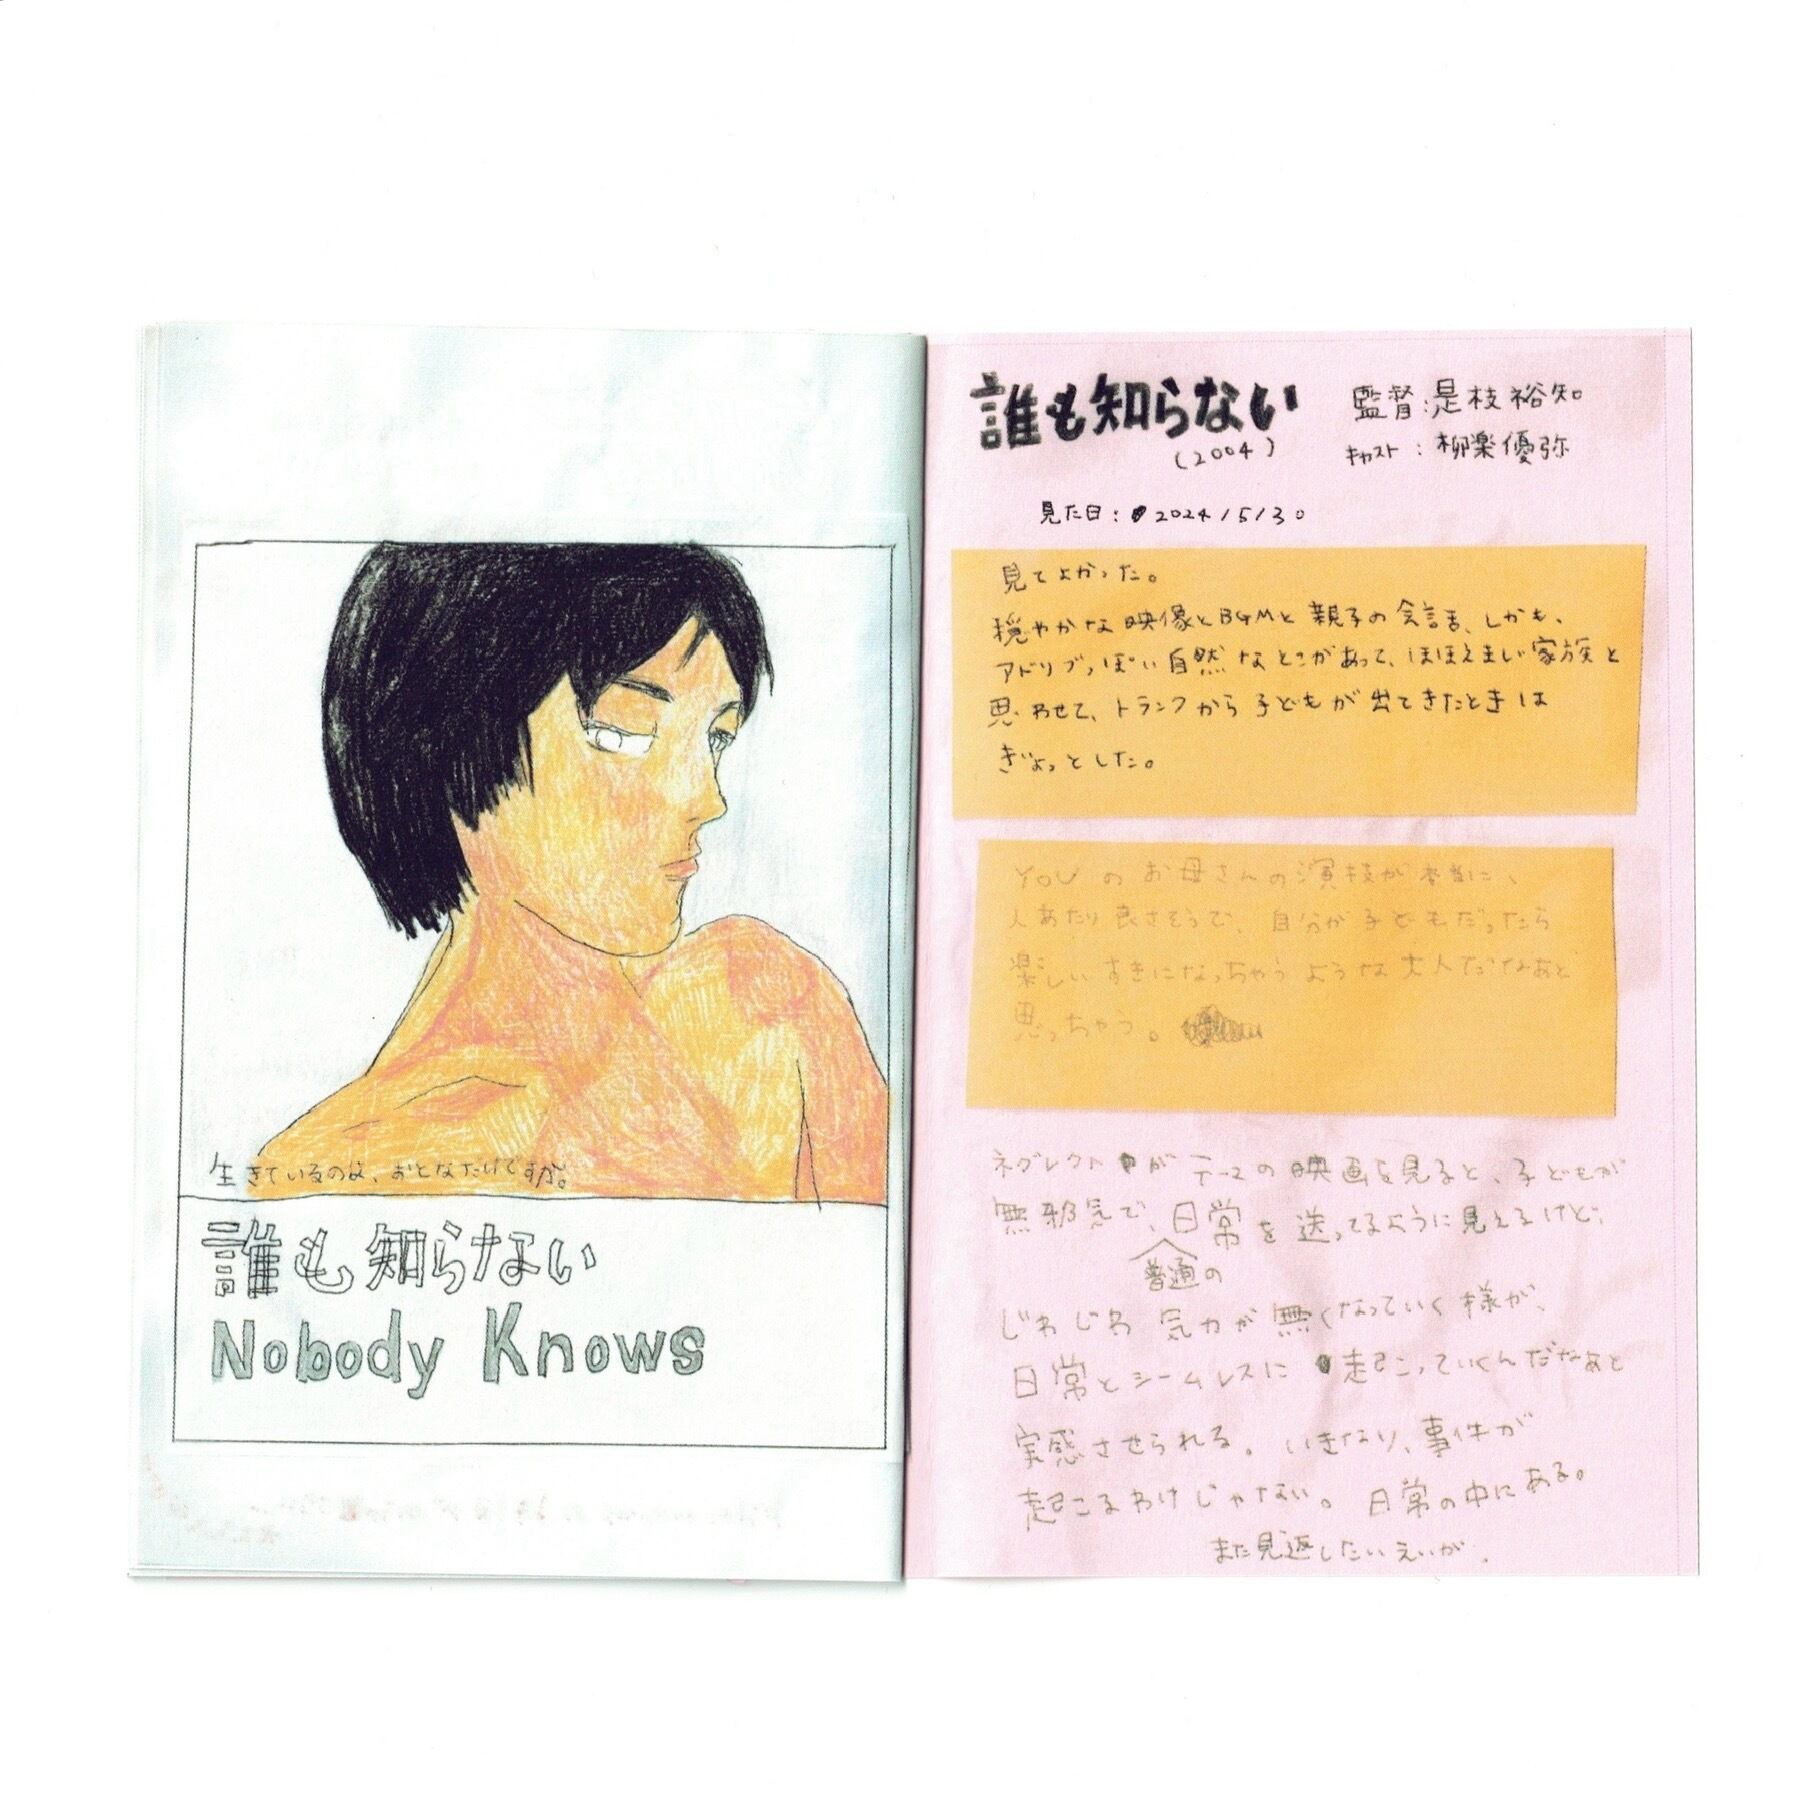 生きているのは、おとなだけですか。
誰も知らない
Nobody Knows
誰も知らない
(2004)
監督:是枝裕知
キャスト:柳楽優弥
見た日:2024/5/30
見てよかった。
穏やかな映像とBGMと親子の会話、しかも、
アドリブっぽい自然なとこがあって、ほほえましい家族と
思わせて、トランクから子どもが出てきたときは
ぎょっとした。
YOUのお母さんの演技が本当に、
人あたり良さそうで、自分が子どもだったら
楽しいすきになっちゃうような大人だなあと
思っちゃう。
ネグレクトがテーマの映画を見ると、子どもが
無邪気で、日常を送ってるように見えるけど、
普通の
じわじわ気力が無くなっていく様が、
日常とシームレスに起こっていくんだなあと
実感させられる。いきなり、事件が
起こるわけじゃない。日常の中にある。
また見返したいえいが。